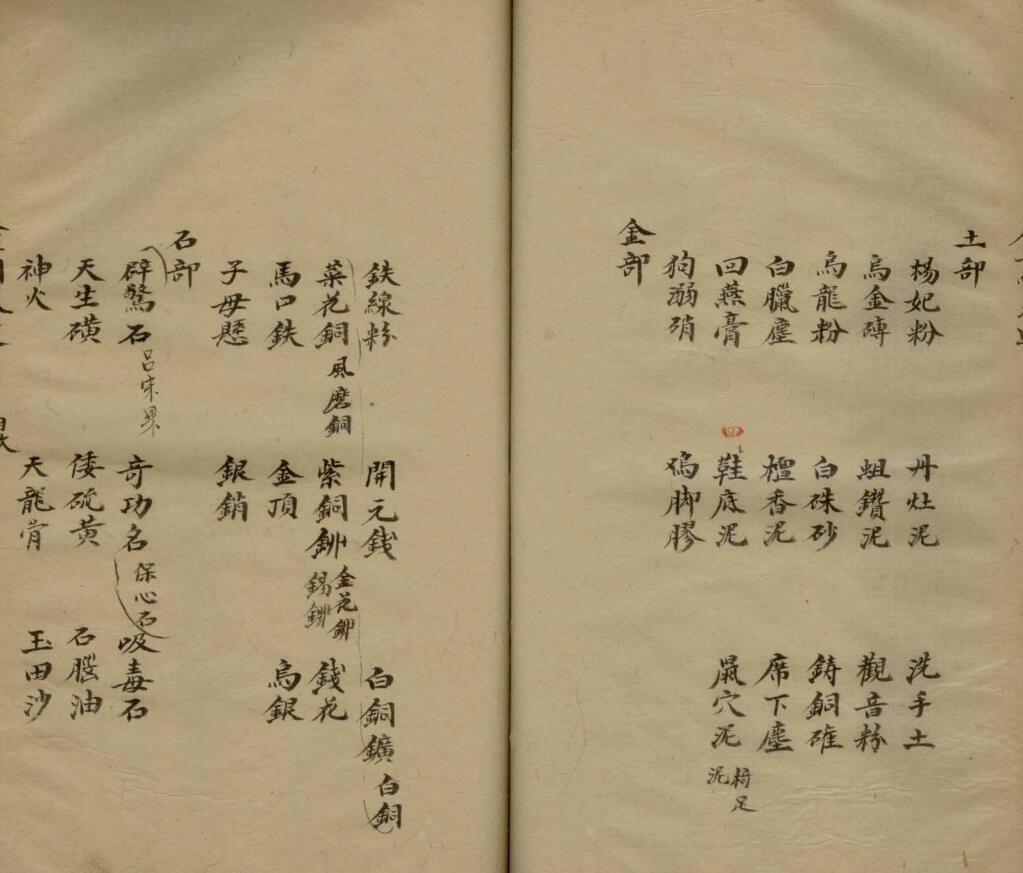 土部
楊妃粉 丹灶泥 洗手土
烏金磚 蛆鑽泥 觀音粉
烏龍粉 白硃砂 鑄銅礶
白臘塵 檀香泥 席下塵
回燕膏 鞋底泥 鼠穴泥 椅足泥
狗溺硝 鴇脚膠
金部
鉄線粉 開元錢 白銅鑛 白銅
菜花銅 風磨銅 紫銅鉚 金花鉚 錫鉚 錢花
馬口鉄 金頂 烏銀
子母懸 銀銷
石部
辟驚石 呂宋果 奇功名 保心石 吸毒石
天生磺 倭硫黄 石腦油
神火 天龍骨 玉田沙